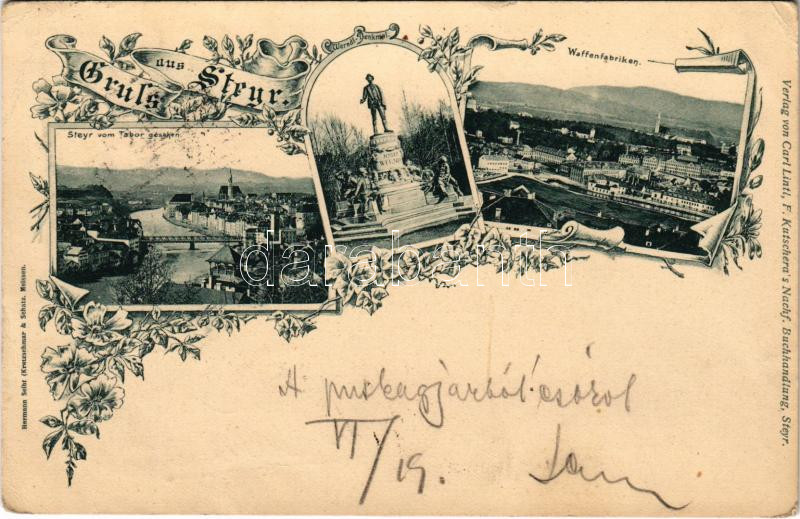 Gruß aus Steyr.
Werndl-Denkmal
Waffenfabriken.
Steyr vom Tabor gesehen.
JOSEF
WERNDL
darabanth
Hermann Seibt (Kretzschmar & Schatz. Meissen.
Verlag von Carl Lintl, F. Kutschera's Nachf. Buchhandlung, Steyr.
A puskagyárból csókol
VI/19.